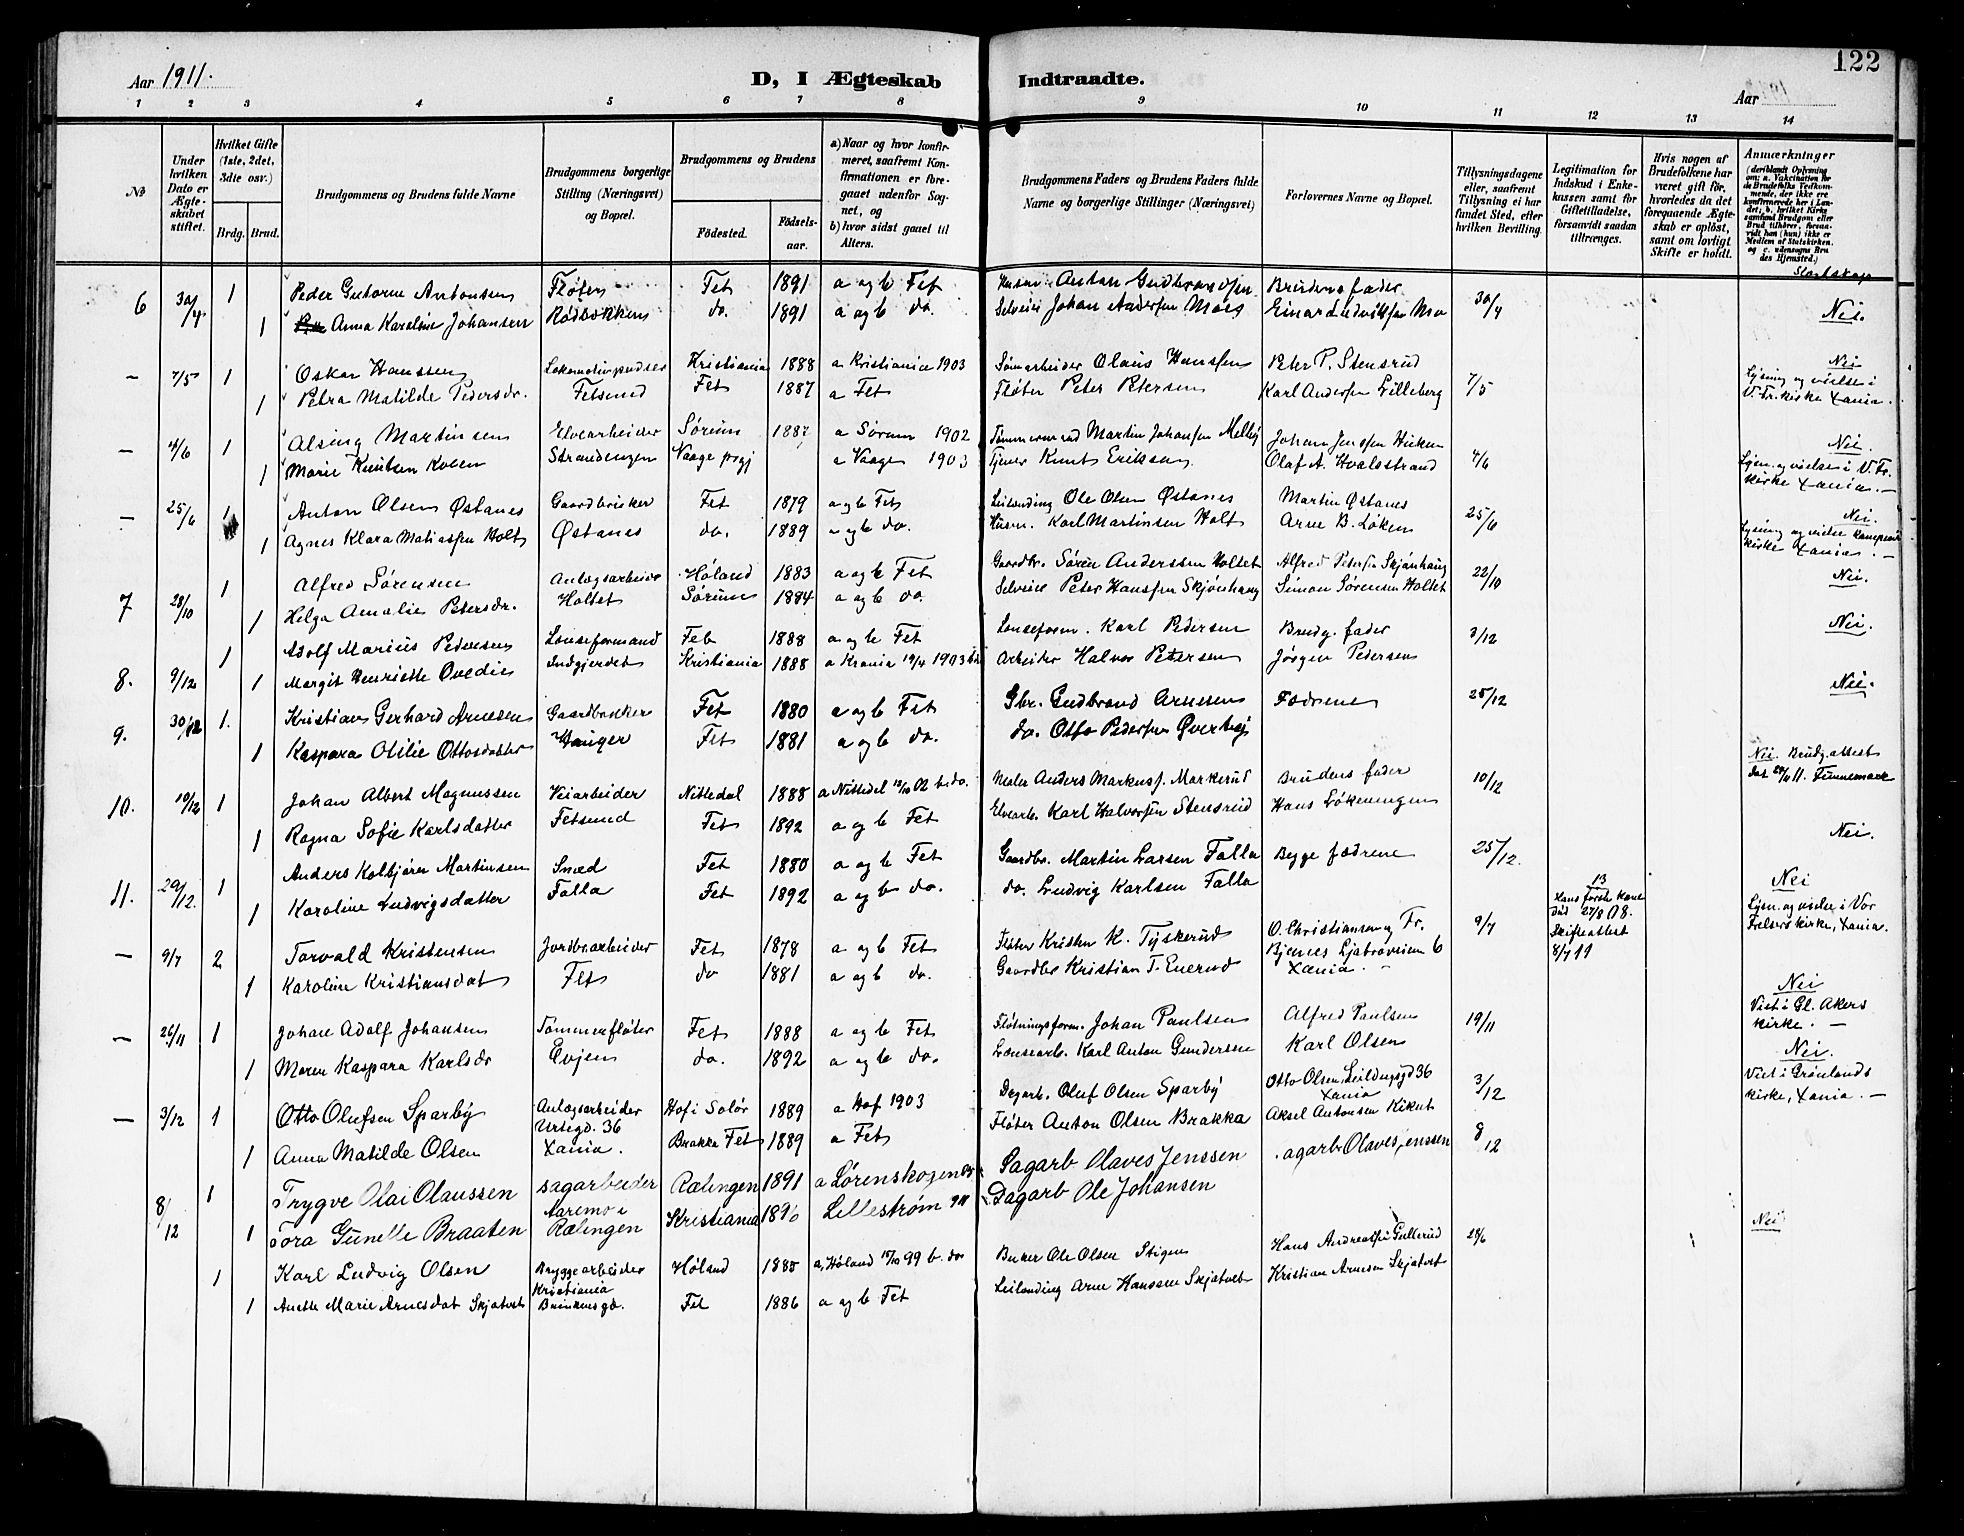 122
Aar 1911.
D, I Ægteskab Indtraadte.
Aar
1 2 3 4 5 6 7 8 9 10 11 12 13 14
No
Under hvilken Dato er Ægteskabet stiftet.
Hvilket Gifte (1ste, 2det, 3die osv.)
Brdg. Brud.
Brudgommens og Brudens fulde Navne
Brudgommens borgerlige Stilling (Næringsvei) og Bopæl.
Brudgommens og Brudens
Fødested. Fødselsaar.
a) Naar og hvor konfirmeret, saafremt Konfirmationen er foregaaet udenfor Sognet, og
b) hvor sidst gaaet til Alters.
Brudgommens Faders og Brudens Faders fulde Navne og borgerlige Stillinger (Næringsvei)
Forlovernes Navne og Bopæl.
Tillysningsdagene eller, saafremt Tillysning ei har fundet Sted, efter hvilken Bevilling.
Legitimation for Indskud i Enkekassen samt for Giftetilladelse, forsaavidt saadan tiltrænges.
Hvis nogen af Brudefolkene har været gift før, hvorledes da det foregaaende Ægteskab er opløst, samt om lovligt Skifte er holdt.
Anmærkninger (deriblandt Oplysning om: a. Vakcination for de Brudefolks Vedkommende, der ikke ere konfirmerede her i Landet; b. hvilket Kirkesamfund Brudgom eller Brud tilhører, forsaavidt han (hun) ikke er Medlem af Statskirken, og c. udensogns Brudes Hjemsted.)
Slægtskap
6 30/4 1 Peder Gutorm Antonsen Fløter Fet 1891 a og b Fet Anton Gudbrandsen Brudens fader 30/4 Nei.
1 Anna Karoline Johansen Rødbækken do. 1891 a og b do. Selveier Johan Andersen Moes Einar Ludviksen Mo
— 7/5 1 Oskar Hanssen Lokomotivpudser Kristiania 1888 a Kristiania 1903 Olaus Hanssen Peter P. Stensrud 7/5 Nei
1 Petra Matilde Pedersdr. Fetsund Fet 1887 a Fet Fløter Peter Petersen Karl Andersen Lilleberg Lysning og vielse i V. Fr. kirke Xania.
— 4/6 1 Alsing Martinsen Elvearbeider Sørum 1887 a Sørum 1902 Tømmermand Martin Johansen Melby Johan Jenssen Nei.
1 Marie Knutsen Strandengen Vaage prgj a Vaage 1903 Tjener Knut Eriksen Olaf A. Hvalstrand 4/6 Lysn. og vielse i V. Fr. kirke Xania. —
— 25/6 1 Anton Olsen Østanes Gaardbruker Fet 1879 a og b Fet Leilænding Ole Olsen Østanes Martin Østanes 25/6 Nei.
1 Agnes Klara Matiassen Holt Østanes do. 1889 a og b do. Husm. Karl Martinsen Holt Arne B. Løken Lysning og vielse kirke Xania. —
7 28/10 1 Alfred Sørensen Anlægsarbeider Høland 1883 a og b Fet Gaardbr. Søren Anderssen Holtet Alfred Petersen Skjønhaug 22/10 Nei.
1 Helga Amalie Petersdr. Holtet Sørum 1884 a og b do. Selveier Peter Hanssen Skjønhaug Simon Sørensen Holtet
8. 9/12 1 Adolf Marius Pedersen Lenseformand Fet 1888 a og b Fet Lenseform. Karl Pedersen Brudg. fader 3/12 Nei.
1 Margit Henriette Ovedie Indgjerdet Kristiania 1888 a Krania 19/4 1903 Arbeider Halvor Petersen Jørgen Pedersen
9. 30/12 1. Kristian Gerhard Arnesen Gaardbruker Fet 1880 a og b Fet Gbr. Gudbrand Arnesen Fædrene 25/12 Nei.
1 Kaspara Otilie Ottosdatter Hauger Fet 1881 a og b do. do. Otto Pedersen Øverby
10. 10/12 1 Johan Albert Magnussen Veiarbeider Nittedal 1888 a Nittedal 12/10 02 b. do. Anders Markuss. Markerud Brudens fader 10/12 Nei. Brudg. attest
1 Ragna Sofie Karlsdatter Fetsund Fet 1892 a og b Fet Elvearb. Karl Halvorsen Stensrud Hans Løkeningen
11. 29/12. 1 Anders Kolbjørn Martinsen Smed Fet 1880 a og b Fet Gaardbr. Martin Larsen Falla Begge fædrene 25/12. Nei.
1 Karoline Ludvigsdatter Falla Fet 1892 a og b do. do. Ludvig Karlsen Falla
— 9/7 2 Torvald Kristensen Jordbr.arbeider Fet 1878 a og b Fet Fløter Kristen K. Tyskerud O. Christiansen og Fr. 9/7 13 Hans første kone død 27/8 08. Skifteattest 8/7 11 Nei Lysn. og vielse i Vor Frelsers kirke, Xania.
1 Karoline Kristiansdat Fet do 1881 a og b do. Gaardbr Kristian T. Enerud Bjernes Ljabroveien 6 Xania.
— 26/11 1 Johan Adolf Johansen Tømmerfløter Fet 1888 a og b Fet Fløtningsform. Johan Paulsen Alfred Paulsen 19/11 Nei Viet i Gl. Akers kirke. —
1 Maren Kaspara Karlsdr Evjen do. 1892 a og b do. Lensearb. Karl Anton Gundersen Karl Olsen
— 3/12 1 Otto Olufsen Sparby Anlægsarbeider Urtegd. 36 Xania. Hof i Solør 1889 a Hof 1903 Dagarb. Oluf Olsen Sparby Otto Olsen, 36 Xania 3/12 Nei. Viet i Grønlands kirke, Xania. —
1 Anna Matilde Olsen Brakka Fet 1889 a Fet Fløter Anton Olsen Brakka Aksel Antonsen Kikut
8/12 1 Trygve Olai Olaussen sagarbeider Rælingen 1891 a Lørenskogen Sagarb Olaves Jenssen agarb. Olaves Jenssen 8/12
1 Tora Gunelle Braaten Aaremo i Rælingen Kristiania 1890 Lillestrøm Dagarb Ole Johansen
1 Karl Ludvig Olsen Bryggearbeider Kristiania Høland 1885 a, Høland 15/10 99 b. do Ole Olsen Stigen Hans Andreassen Gullerud Nei
1 Anette Marie Arnesdat Skjatvet Brinkensgd. Fet 1886 a og b Fet Leilænding Arne Hanssen Skjatvet Kristian Arnesen Skjatvet